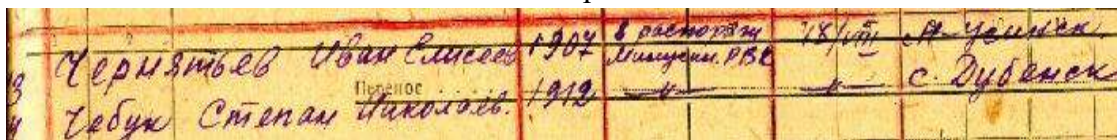 3 Чернятьев Иван Елисеев 1907 в распоряж Минусин. РВК 18/VIII Н-Усинск
Перенос
Чебук Степан Николаев. 1912 —"— —"— с. Дубенск